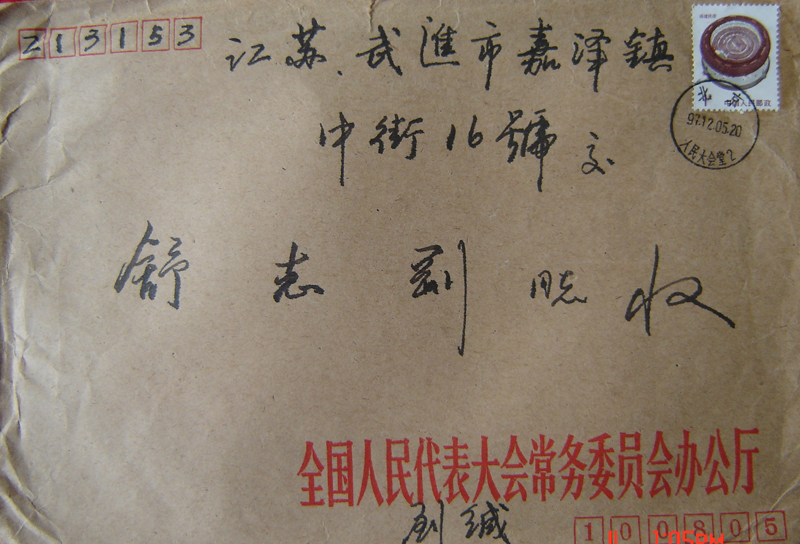 213153
江苏、武進市嘉泽镇
中街16號 交
舒志刚 同志 收
中国人民邮政
北京
97.12.05.20
人民大会堂2
全国人民代表大会常务委员会办公厅
刘缄
100805